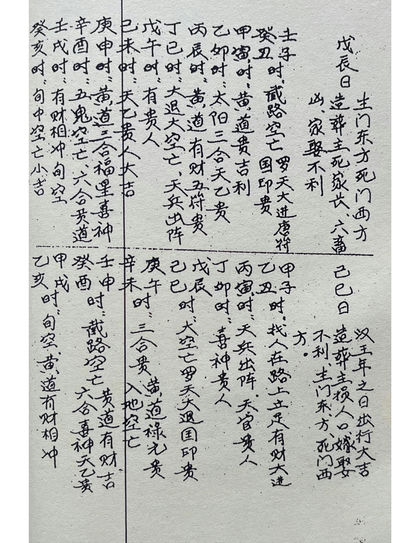 戊辰日
生门东方死门西方
造葬主死家长、六畜
凶 家娶不利
壬子时. 截路空亡 罗天大进唐符
癸丑 国印贵
甲寅时: 黄道贵吉利
乙卯时: 太阳三合天乙贵
丙辰时: 黄道有财五符贵
丁巳时: 大退大空亡, 天兵出阵
戊午时: 有贵人
己未时: 天乙贵人大吉
庚申时: 黄道三合福星喜神
辛酉时: 五鬼空亡、六合黄道
壬戌时: 有财相冲旬空
癸亥时: 旬中空亡小吉
己巳日
汉王年之日出行大吉
造葬主损人口嫁娶
不利 生门东方 死门西
方。
甲子时. 找人在路上立足有财大进
乙丑
丙寅时: 天兵出阵. 天官贵人
丁卯时: 喜神贵人
戊辰 大空亡罗天大退国印贵
己巳
庚午时: 黄道禄元贵
辛未时: 三合贵 入地空亡
壬申时: 截路空亡 黄道有财吉
癸酉 六合喜神天乙贵
甲戌
乙亥时: 旬空 黄道有财相冲